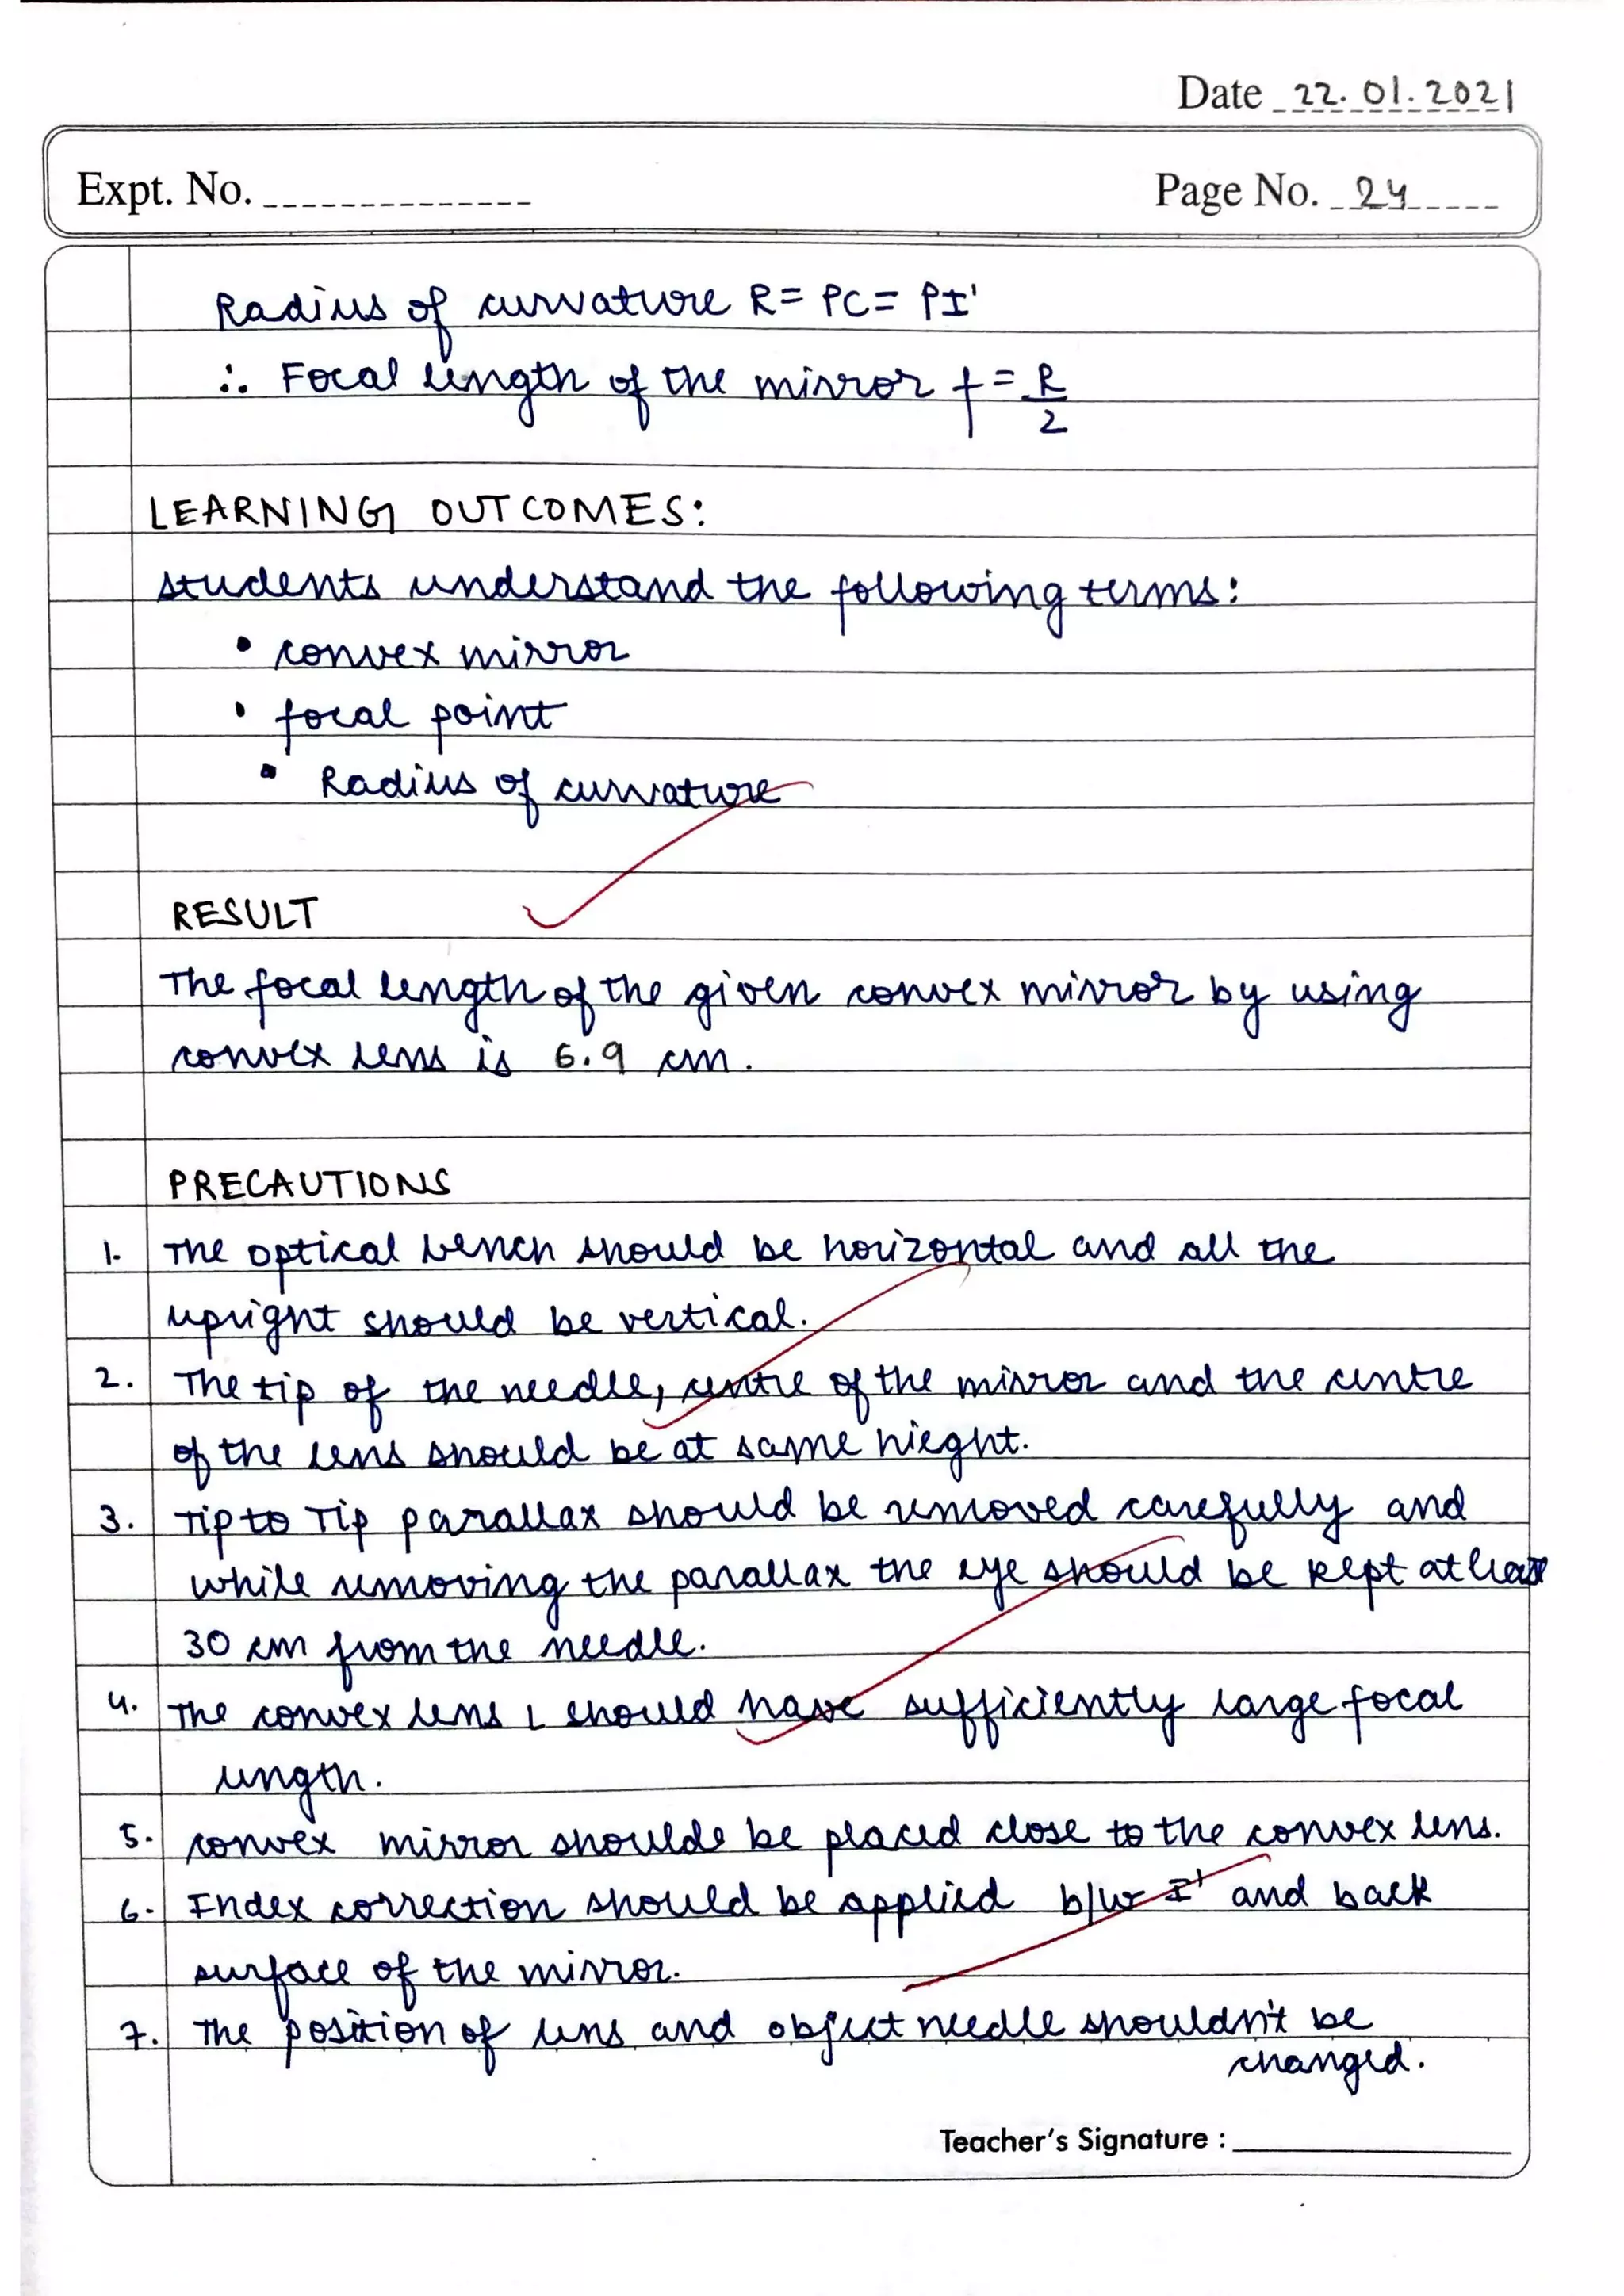 Date 22.01.2021
Expt. No.
Page No. 24
Radius of curvature R = PC = PI'
∴ Focal length of the mirror f = R/2
LEARNING OUTCOMES:
students understand the following terms:
• convex mirror
• focal point
• Radius of curvature
RESULT
The focal length of the given convex mirror by using
convex lens is 6.9 cm.
PRECAUTIONS
1. The optical bench should be horizontal and all the
upright should be vertical.
2. The tip of the needle, centre of the mirror and the centre
of the lens should be at same hieght.
3. Tip to Tip parallax should be removed carefully and
while removing the parallax the eye should be kept atleast
30 cm from the needle.
4. The convex lens L should have sufficiently large focal
length.
5. convex mirror shoulde be placed close to the convex lens.
6. Index correction should be applied b/w I' and back
surface of the mirror.
7. The position of lens and object needle shouldn't be
changed.
Teacher's Signature :